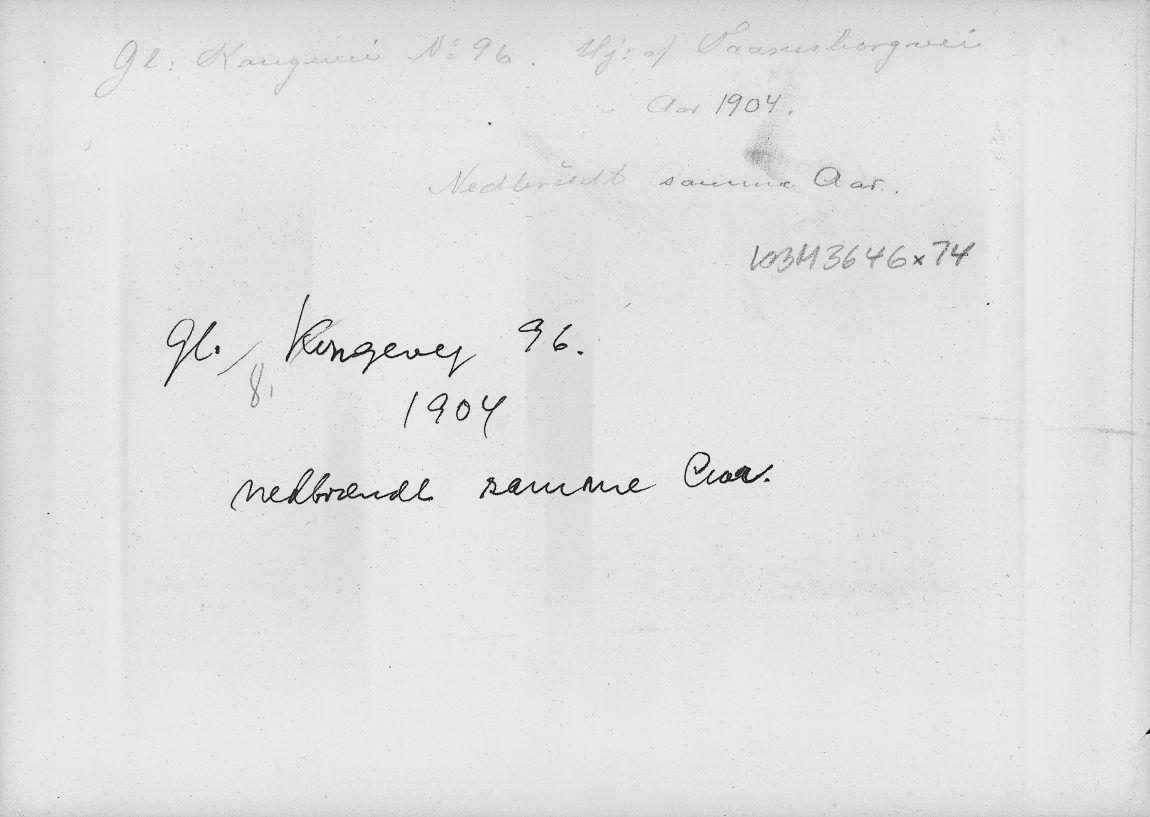 Gl: Kongevei No 96. Hj: af
Aar 1904.
Nedbrændt samme Aar.
KBH3646x74
gl. Kongevej 96.
8.
1904
nedbrændt samme Aar.